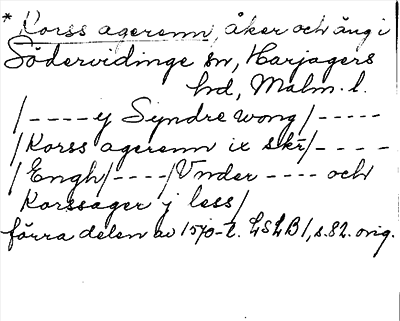 * Korss agerenn, åker och äng i
Södervidinge sn, Harjagers
hd, Malm. l.
/ - - - - ij Syndre wong / - - - - -
/ Korss agerenn ix skr / - - - -
/ Engh / - - - - / Vnder - - - - och
Korssager j less /
förra delen av 1570-t. LSLB 1, s. 82. orig.